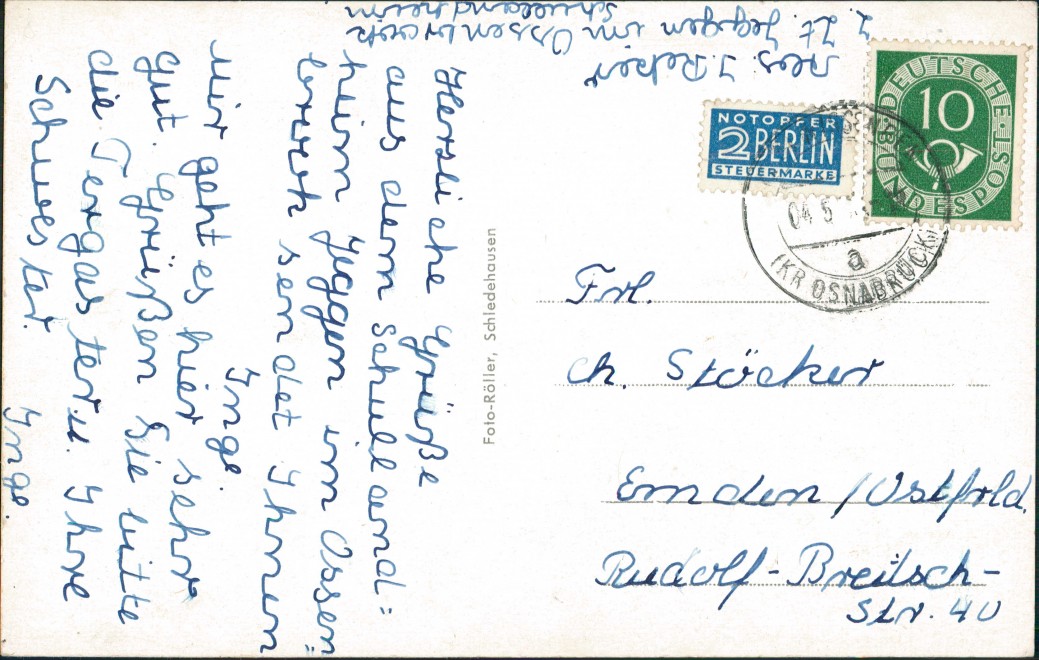 Abs. I. Reker
z. Zt. Jeggen im Ossenbrock
Schullandheim
Herzliche Grüße
aus dem Schulland=
heim Jeggen im Ossen=
brock sendet Ihnen
Inge.
Mir geht es hier sehr
gut. Grüßen Sie bitte
die
u. Ihre
Schwester.
Inge.
Foto-Röller, Schledehausen
NOTOPFER
2 BERLIN
STEUERMARKE
DEUTSCHE BUNDESPOST
10
04.5
a
(KR OSNABRÜCK)
Frl.
Ch. Stöcker
Emden/Ostfrld.
Rudolf-Breitsch-
Str. 40